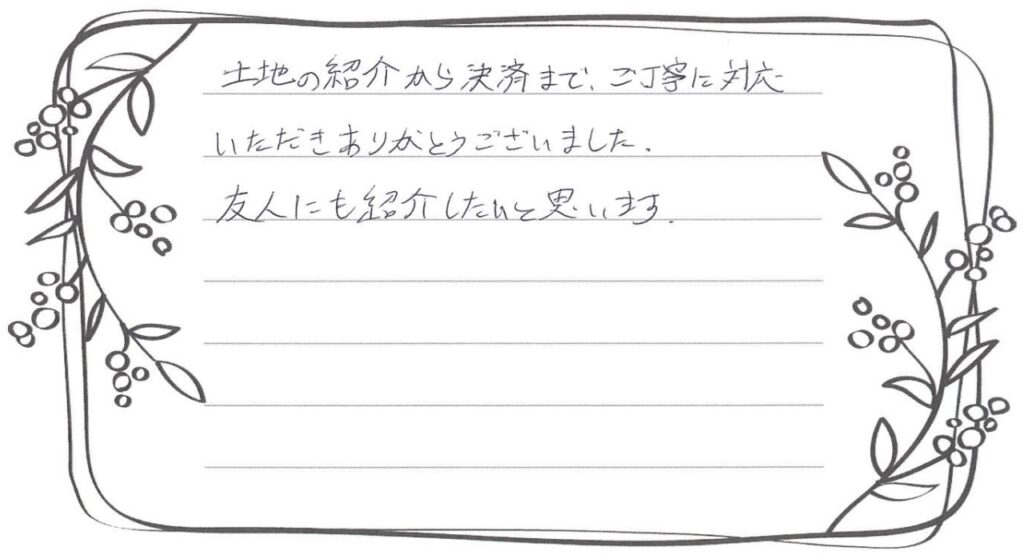 土地の紹介から決済まで、ご丁寧に対応
いただきありがとうございました.
友人にも紹介したいと思います.